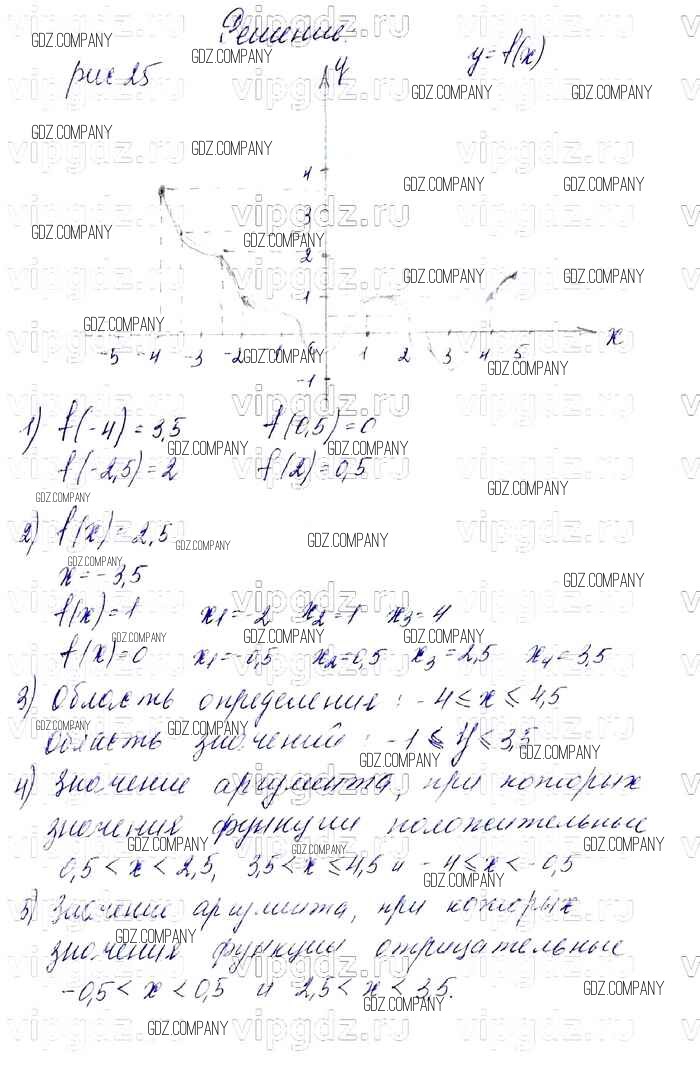 Решение.
рис 25
y = f(x)
y
4
3
2
1
-5 -4 -3 -2 1 2 3 4 5 x
-1
1) f(-4) = 3,5 f(0,5) = 0
f(-2,5) = 2 f(2) = 0,5
2) f(x) = 2,5
x = -3,5
f(x) = 1 x1 = -2 x2 = 1 x3 = 4
f(x) = 0 x1 = -0,5 x2 = 0,5 x3 = 2,5 x4 = 3,5
3) Область определения: -4 ⩽ x ⩽ 4,5
Область значений: -1 ⩽ y ⩽ 3,5
4) Значение аргумента, при которых
значения функции положительные
0,5 < x < 2,5, 3,5 < x ⩽ 4,5 и -4 ⩽ x < -0,5
5) Значение аргумента, при которых
значения функции отрицательные
-0,5 < x < 0,5 и 2,5 < x < 3,5.
vipgdz.ru
GDZ.COMPANY